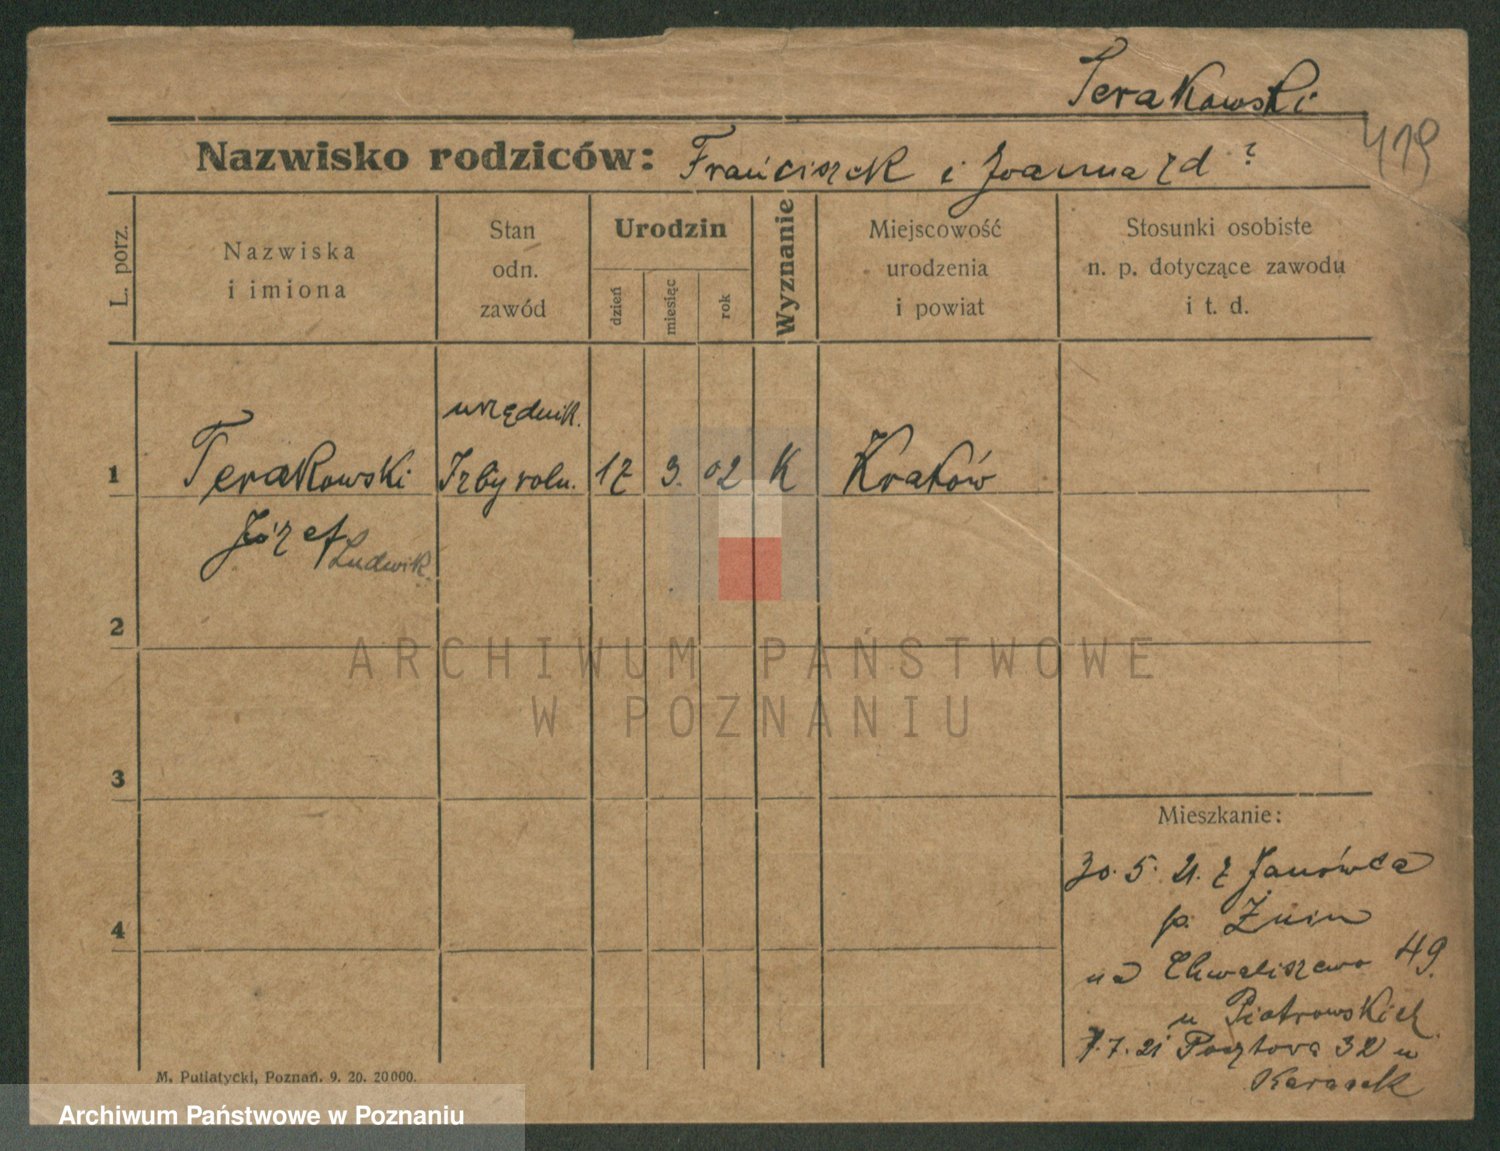 Terakowski
419
Nazwisko rodziców: Franciszek i Joanna zd ?
L. porz.
Nazwiska
i imiona
Stan
odn.
zawód
Urodzin
dzień
miesiąc
rok
Wyznanie
Miejscowość
urodzenia
i powiat
Stosunki osobiste
n. p. dotyczące zawodu
i t. d.
urzędnik.
1 Terakowski Izby roln. 17 3. 02 K Kraków
Józef Ludwik
2
3
4
Mieszkanie:
30. 5. 21. z Janówca
p. Żnin
na Chwaliszewo 49.
u Piotrowskich
7. 7. 21 Pocztowa 32 u
Karasek
M. Putiatycki, Poznań. 9. 20. 20000.
ARCHIWUM PAŃSTWOWE
W POZNANIU
Archiwum Państwowe w Poznaniu